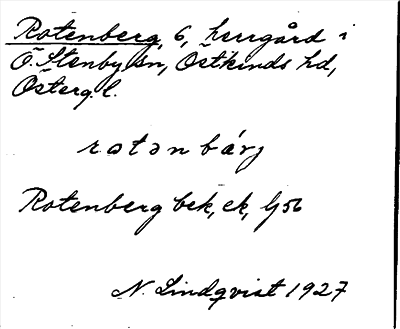 Rotenberg, 6, herrgård i
Ö. Stenby sn, Östkinds hd,
Österg. l.
rotən bárj
Rotenberg bek, ek, Gj 56
N. Lindqvist 1927